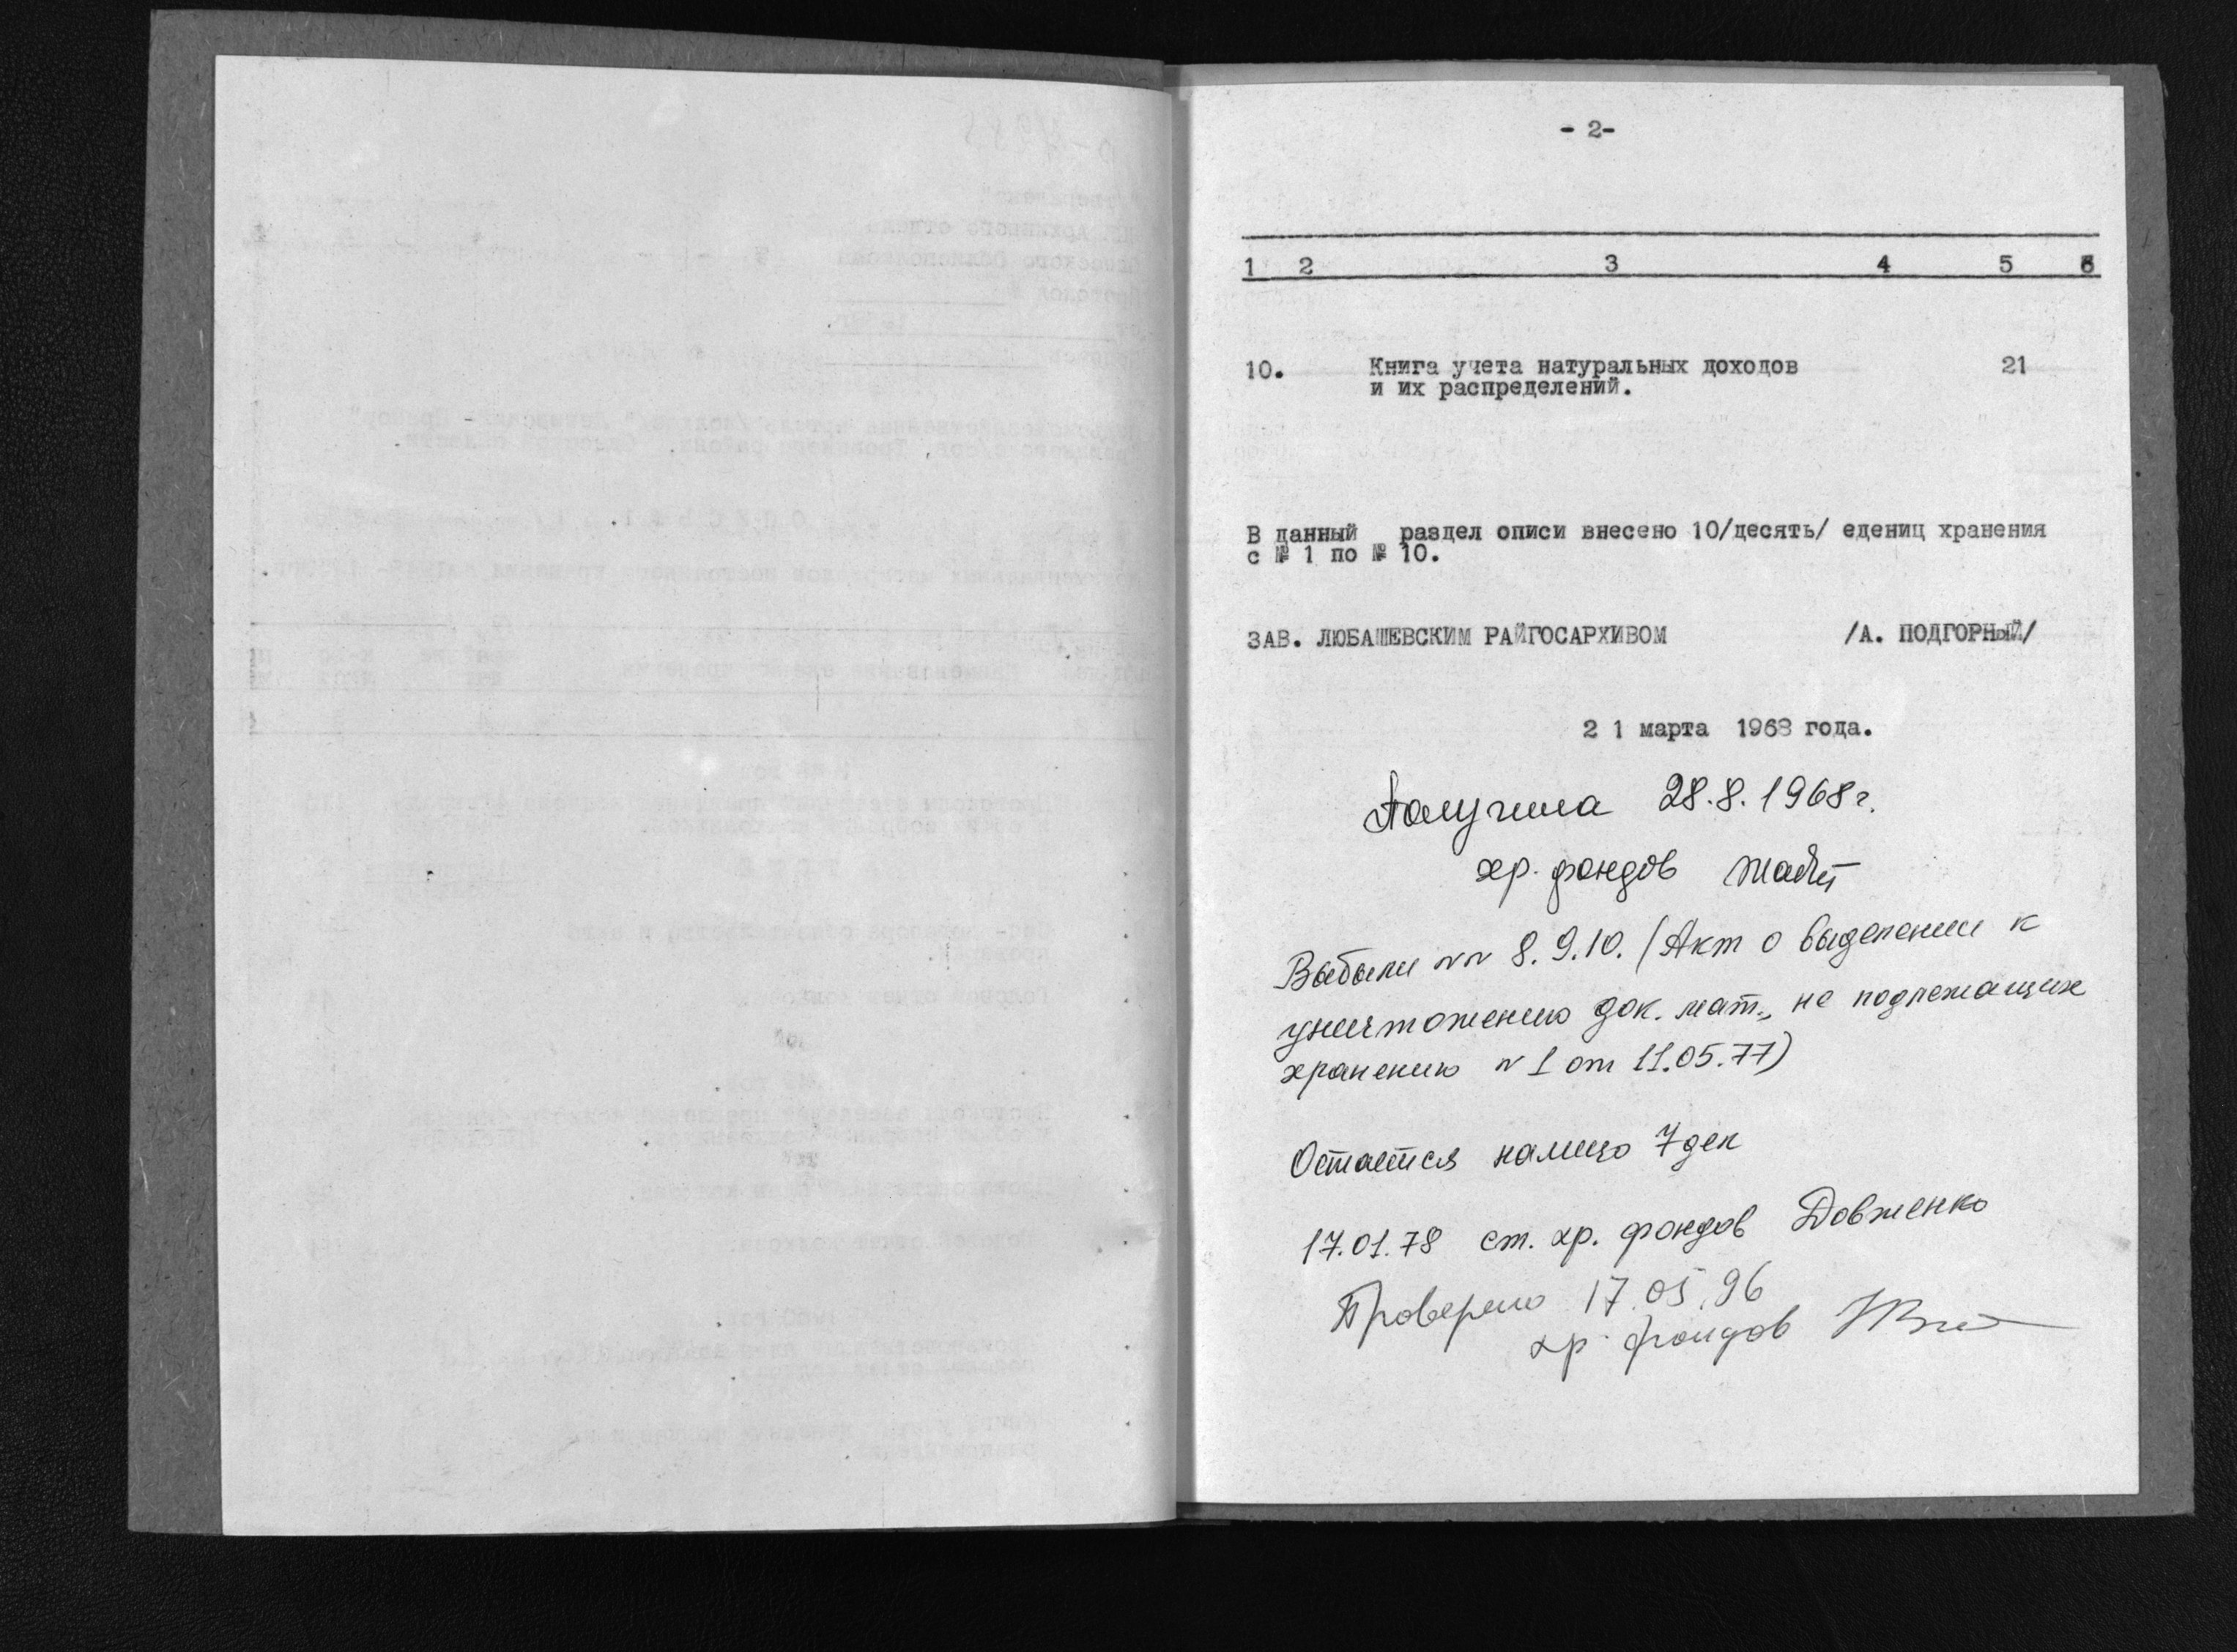 - 2-
1 2 3 4 5 6
10. Книга учета натуральных доходов 21
и их распределений.
В данный раздел описи внесено 10/десять/ едениц хранения
с № 1 по № 10.
ЗАВ. ЛЮБАШЕВСКИМ РАЙГОСАРХИВОМ /А. ПОДГОРНЫЙ/
2 1 марта 1968 года.
Получила 28.8.1968г.
хр. фондов
Выбыли №№ 8.9.10. (Акт о выделении к
уничтожению док. мат., не подлежащих
хранению № 1 от 11.05.77)
Остается налицо 7 дел
17.01.78 ст. хр. фондов Довженко
Проверено 17.05.96
хр. фондов